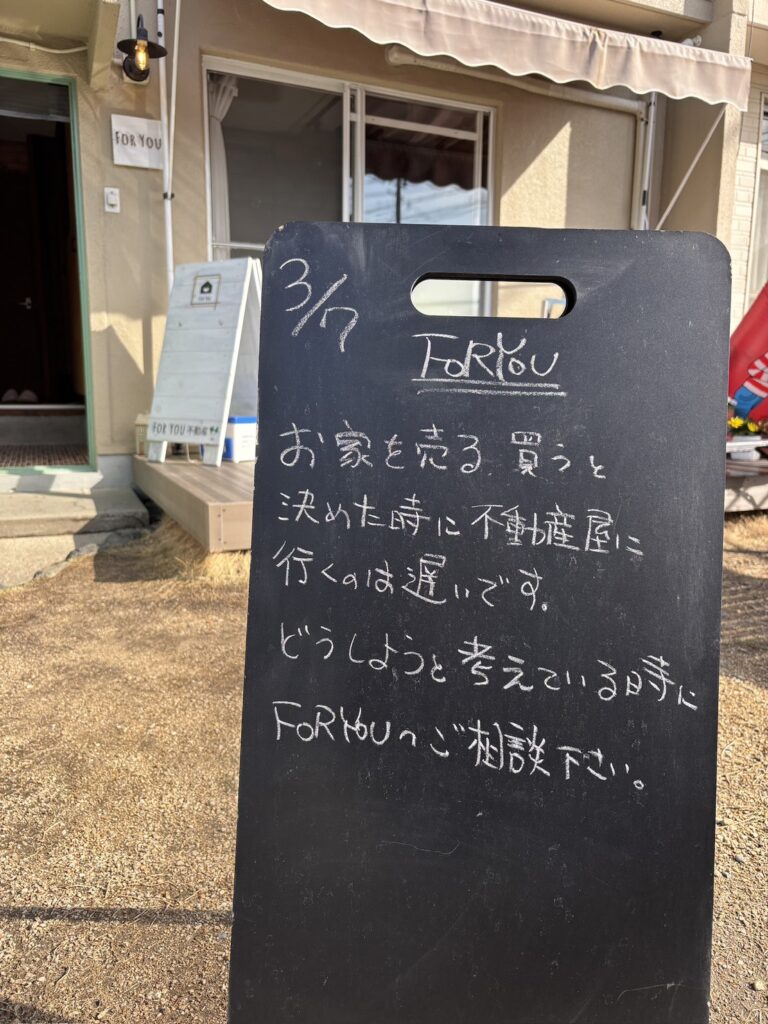 FOR YOU
FOR YOU 不動産
3/7
FOR YOU
お家を売る、買うと
決めた時に不動産屋に
行くのは遅いです。
どうしようと考えている時に
FOR YOUへご相談下さい。